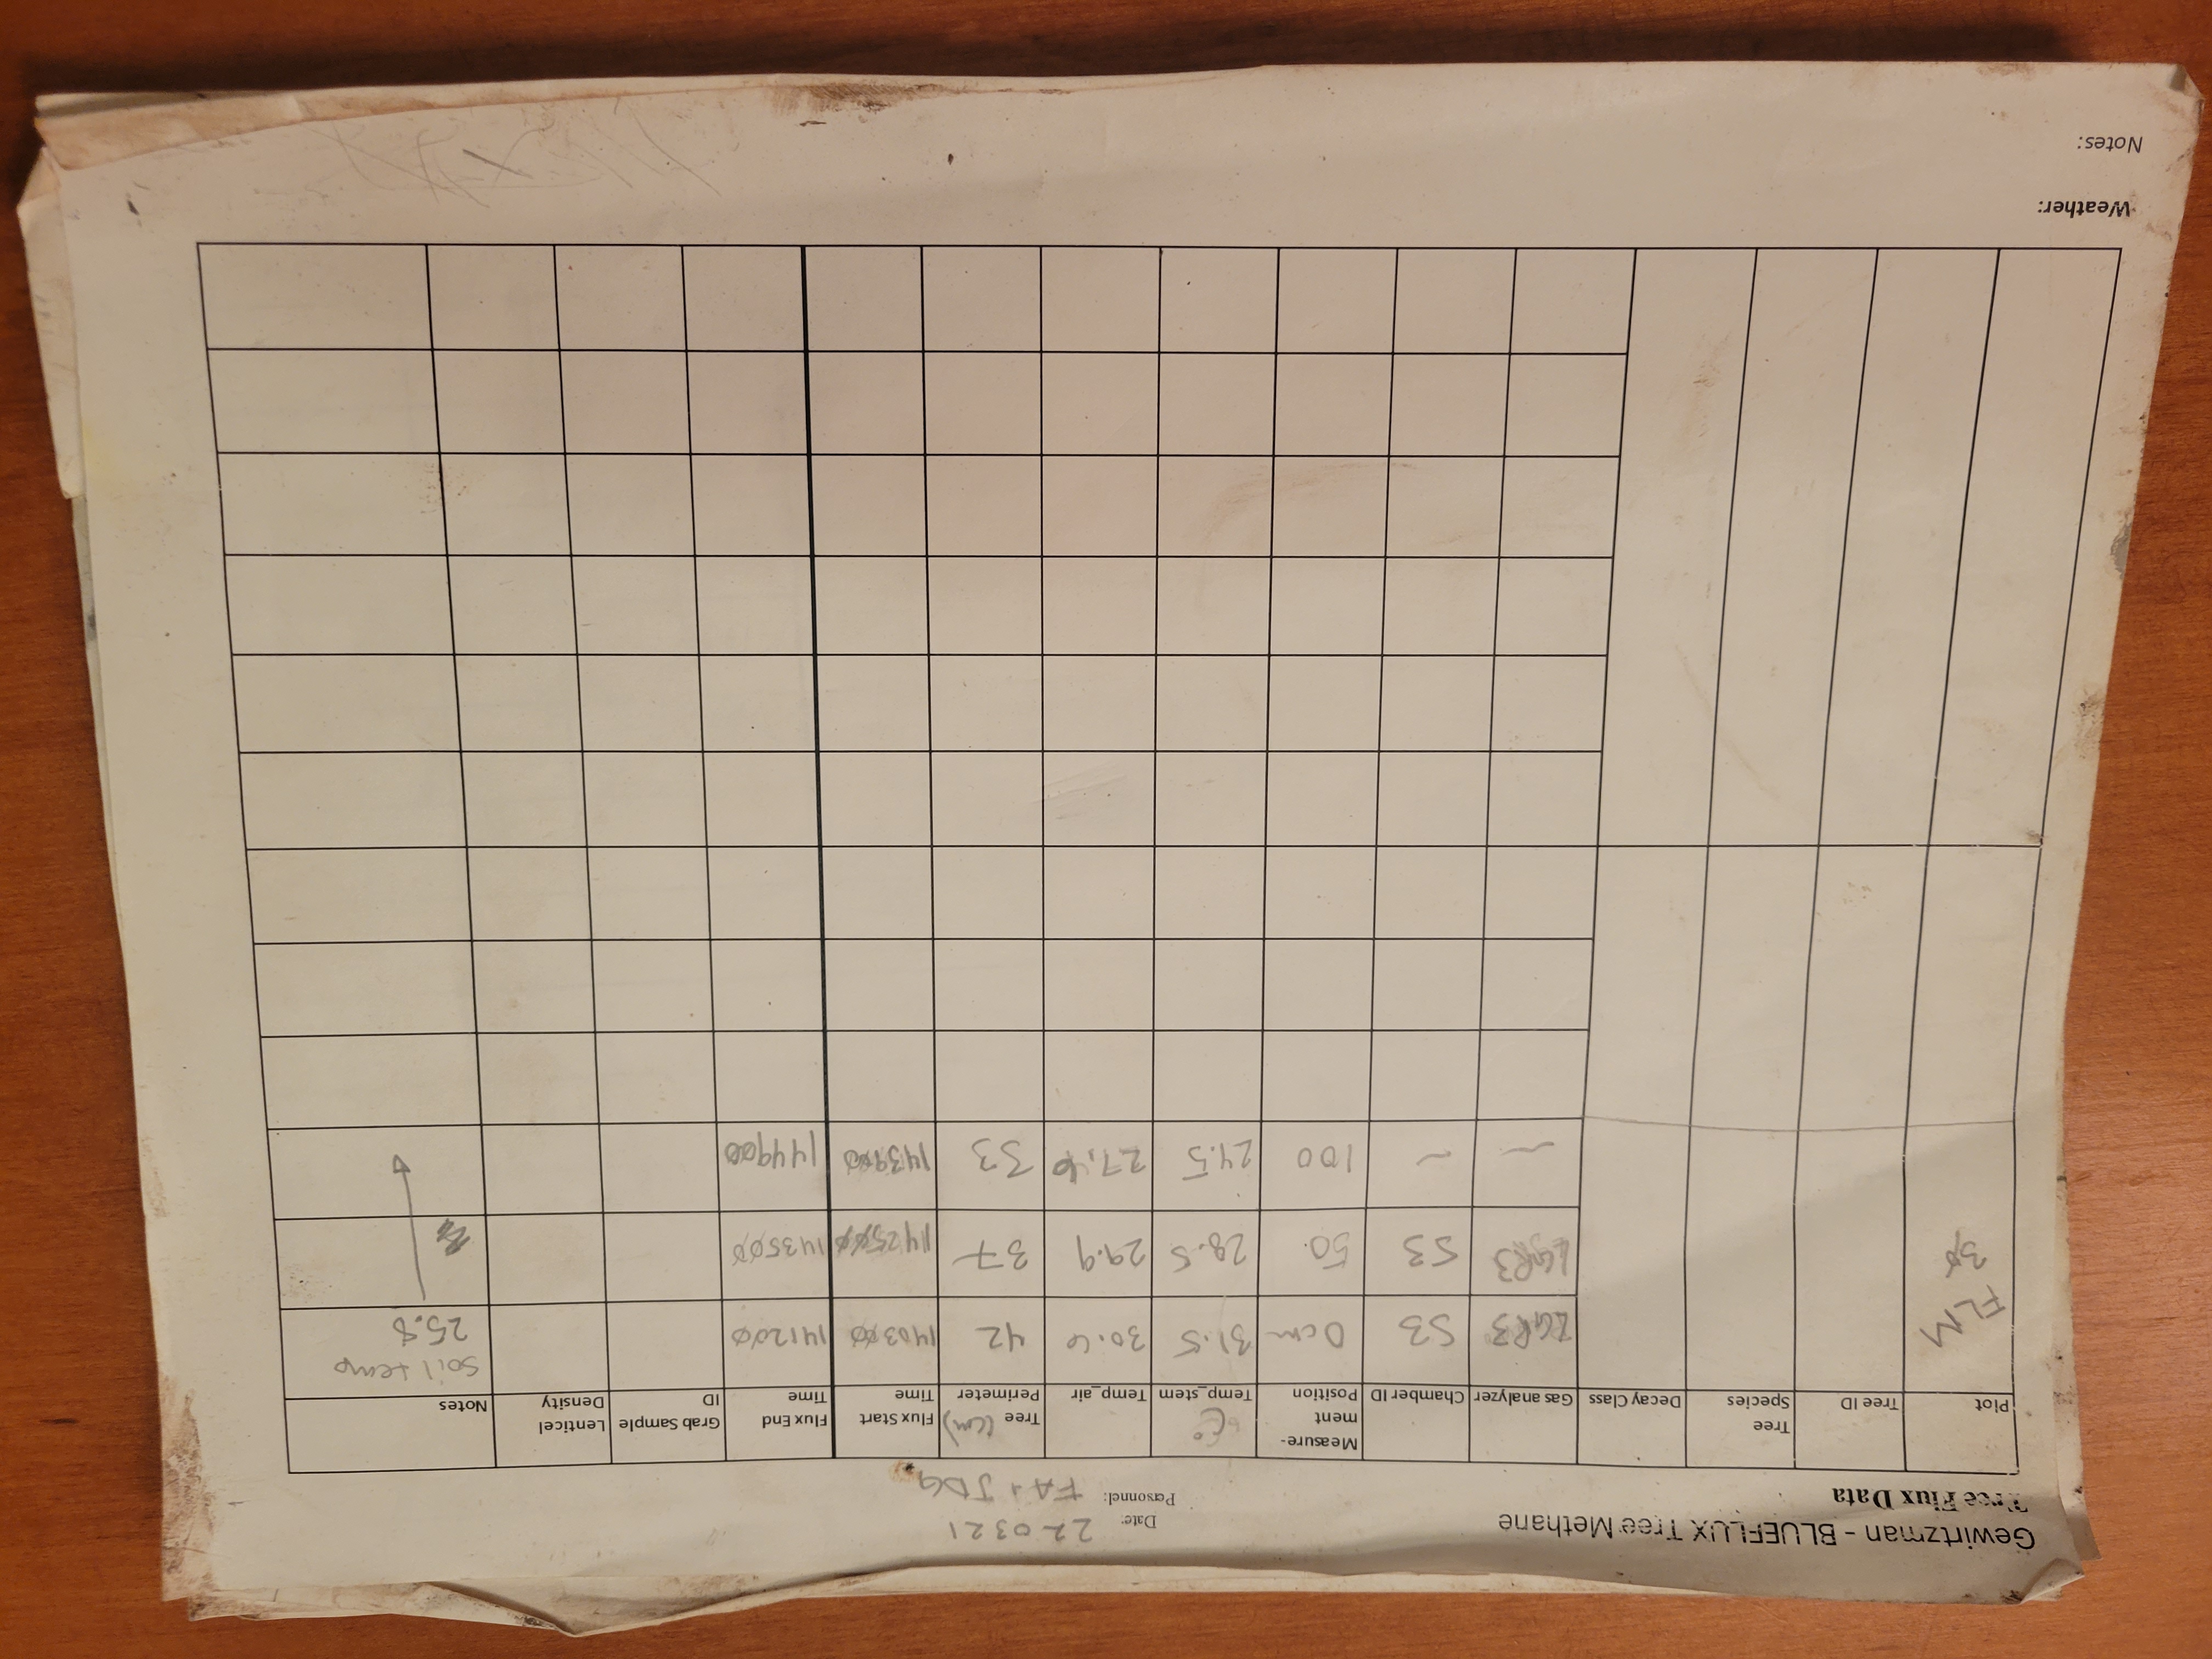 Gewirtzman - BLUEFLUX Tree Methane
Tree Flux Data
Date: 220321
Personnel: FA + JDG
Plot Tree ID Tree Species Decay Class Gas analyzer Chamber ID Measure-ment Position °C Temp_stem Temp_air Tree (cm) Perimeter Flux Start Time Flux End Time Grab Sample ID Lenticel Density Notes
FLM 30
LGR3 S3 0cm 31.5 30.6 42 140300 141200 soil temp 25.8
LGR3 S3 50 28.5 29.9 37 142500 143500
~ ~ 100 24.5 27.6 33 143900 144900
Weather:
Notes: